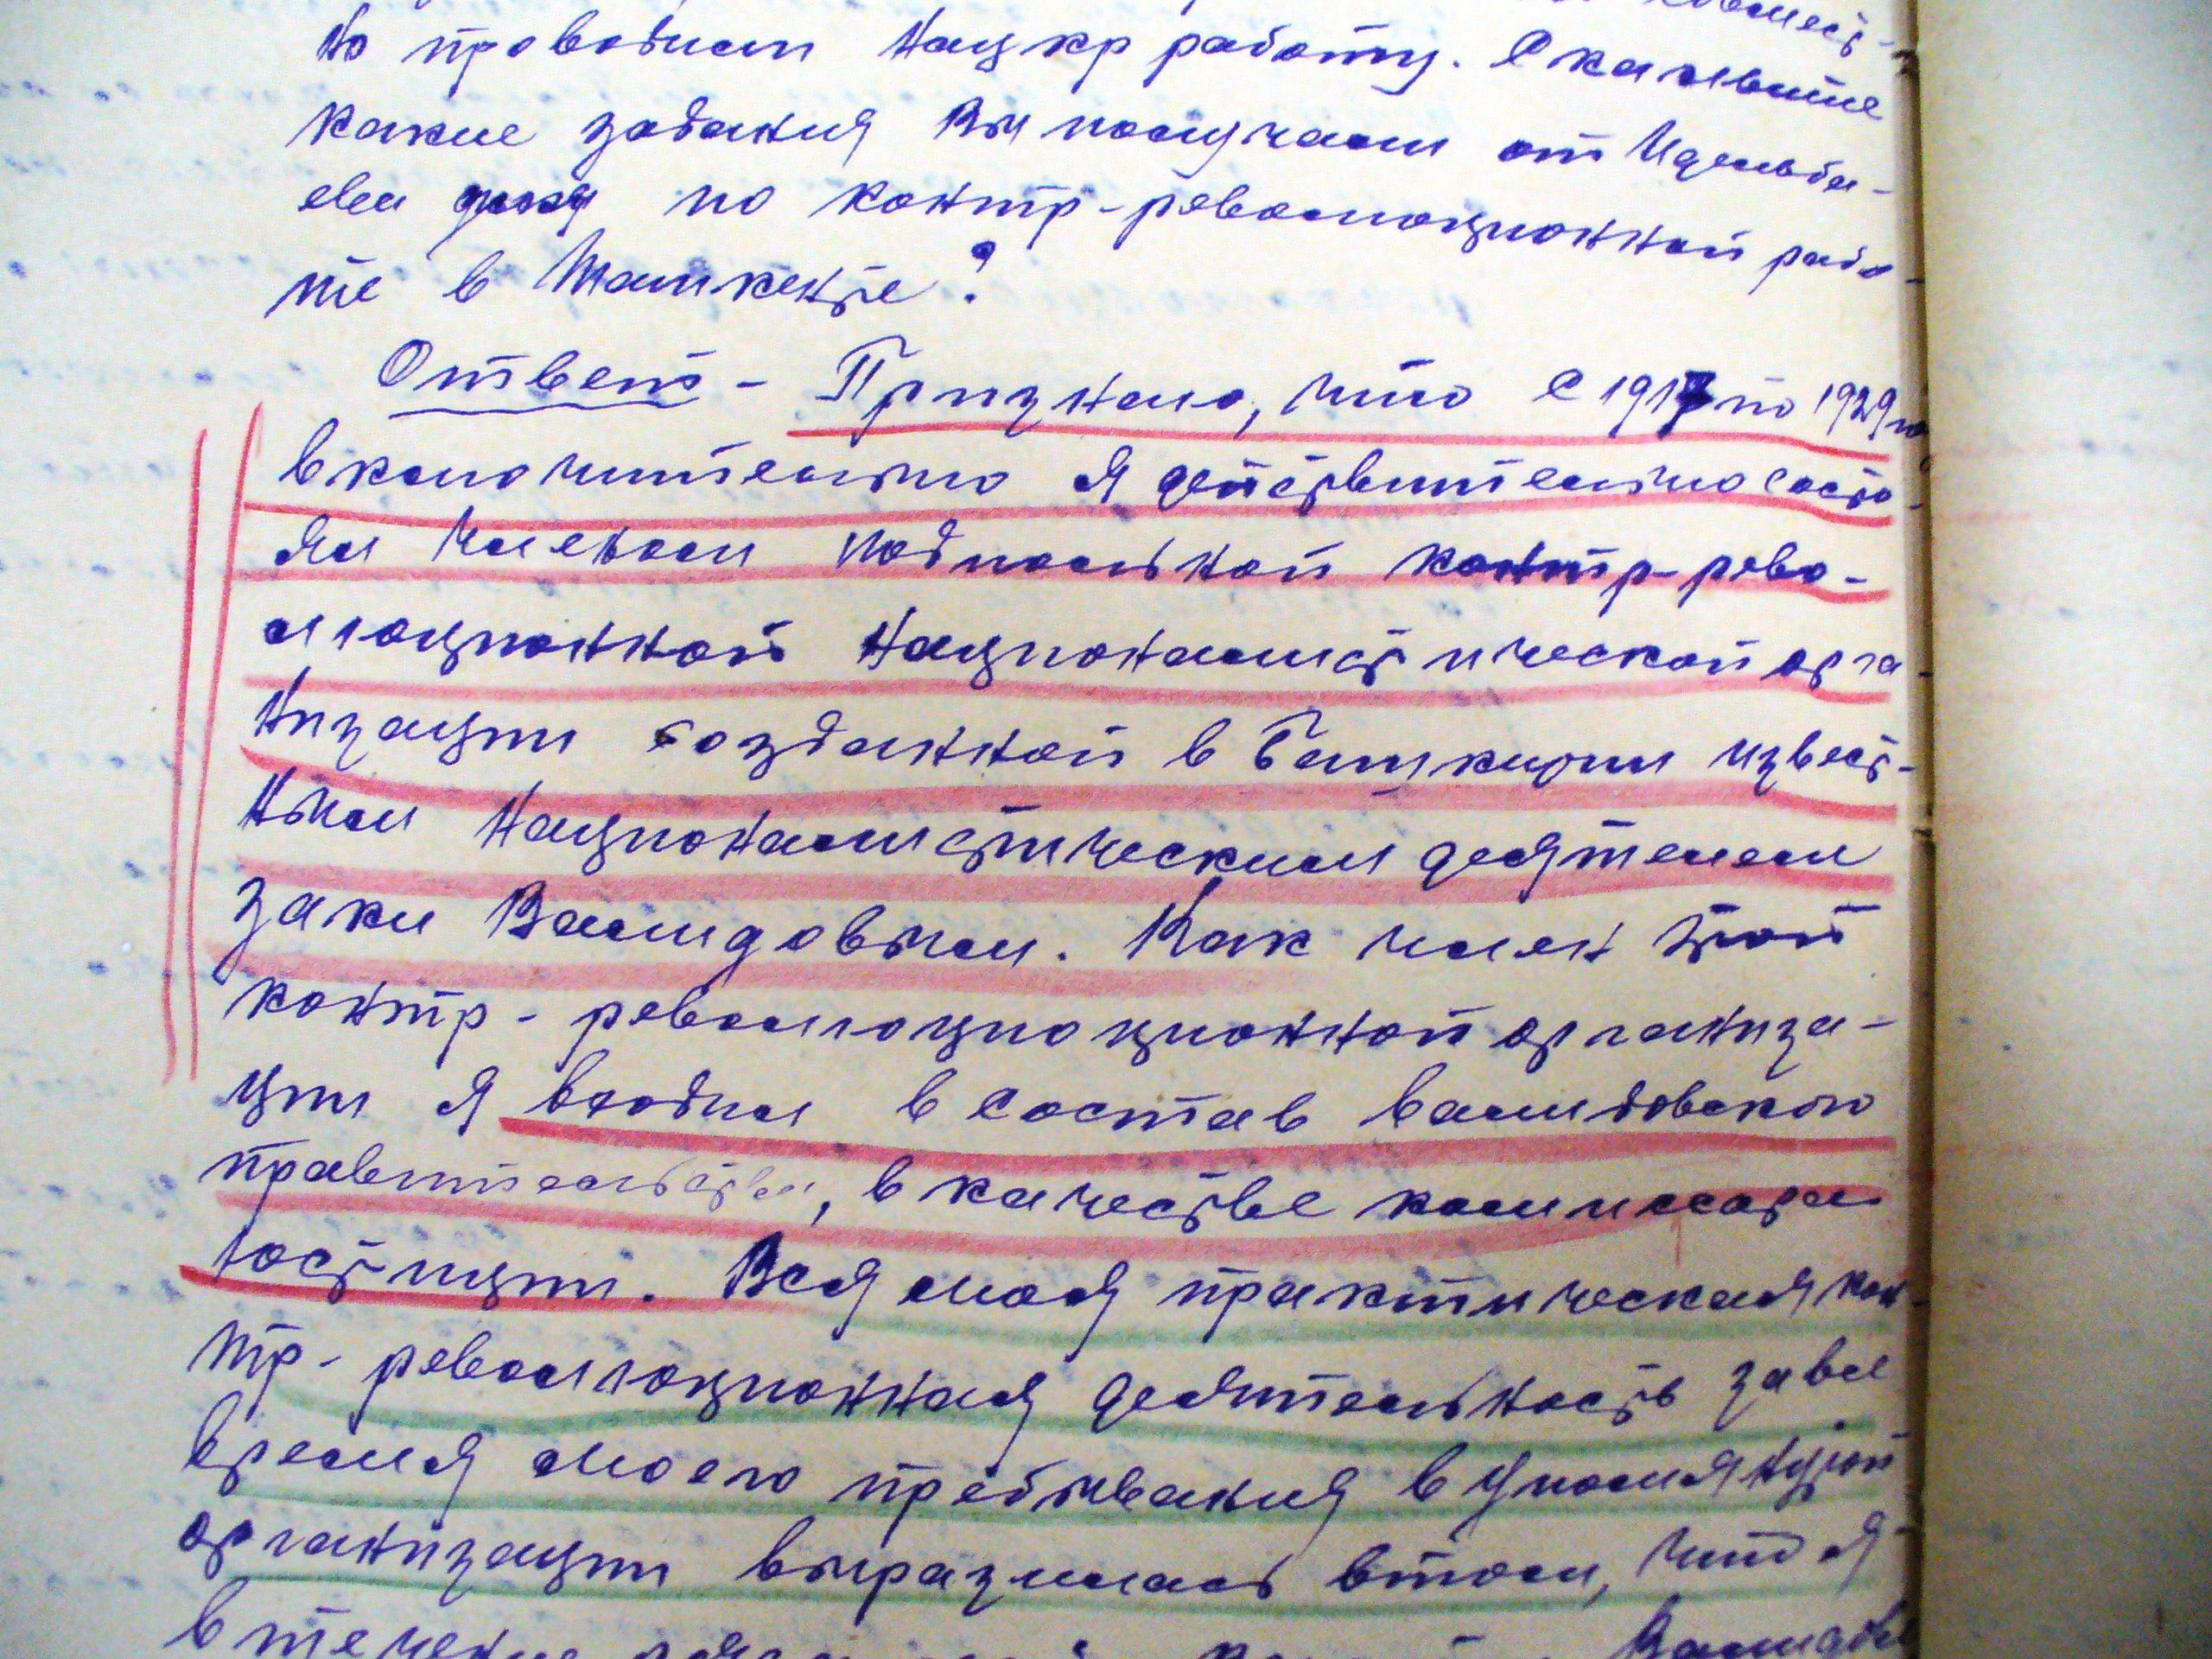 но проводили нац кр работу. Скажите
какие задания Вы получали от Идельба-
ева по контр-революционной рабо-
те в Ташкенте?
Ответ - Признаю, что с 1917 по 1929 го
включительно я действительно состо-
ял членом подпольной контр-рево-
люционной националистической орга-
низации созданной в Башкирии извест-
ным националистическим деятелем
Заки Валидовым. Как член этой
контр-революциоционной организа-
ции я входил в состав валидовского
правительства, в качестве комиссара
юстиции. Вся моя практическая кон-
тр-революционная деятельность за все
время моего пребывания в упомянутой
организации выразилась в том, что я
в течение Валидовы